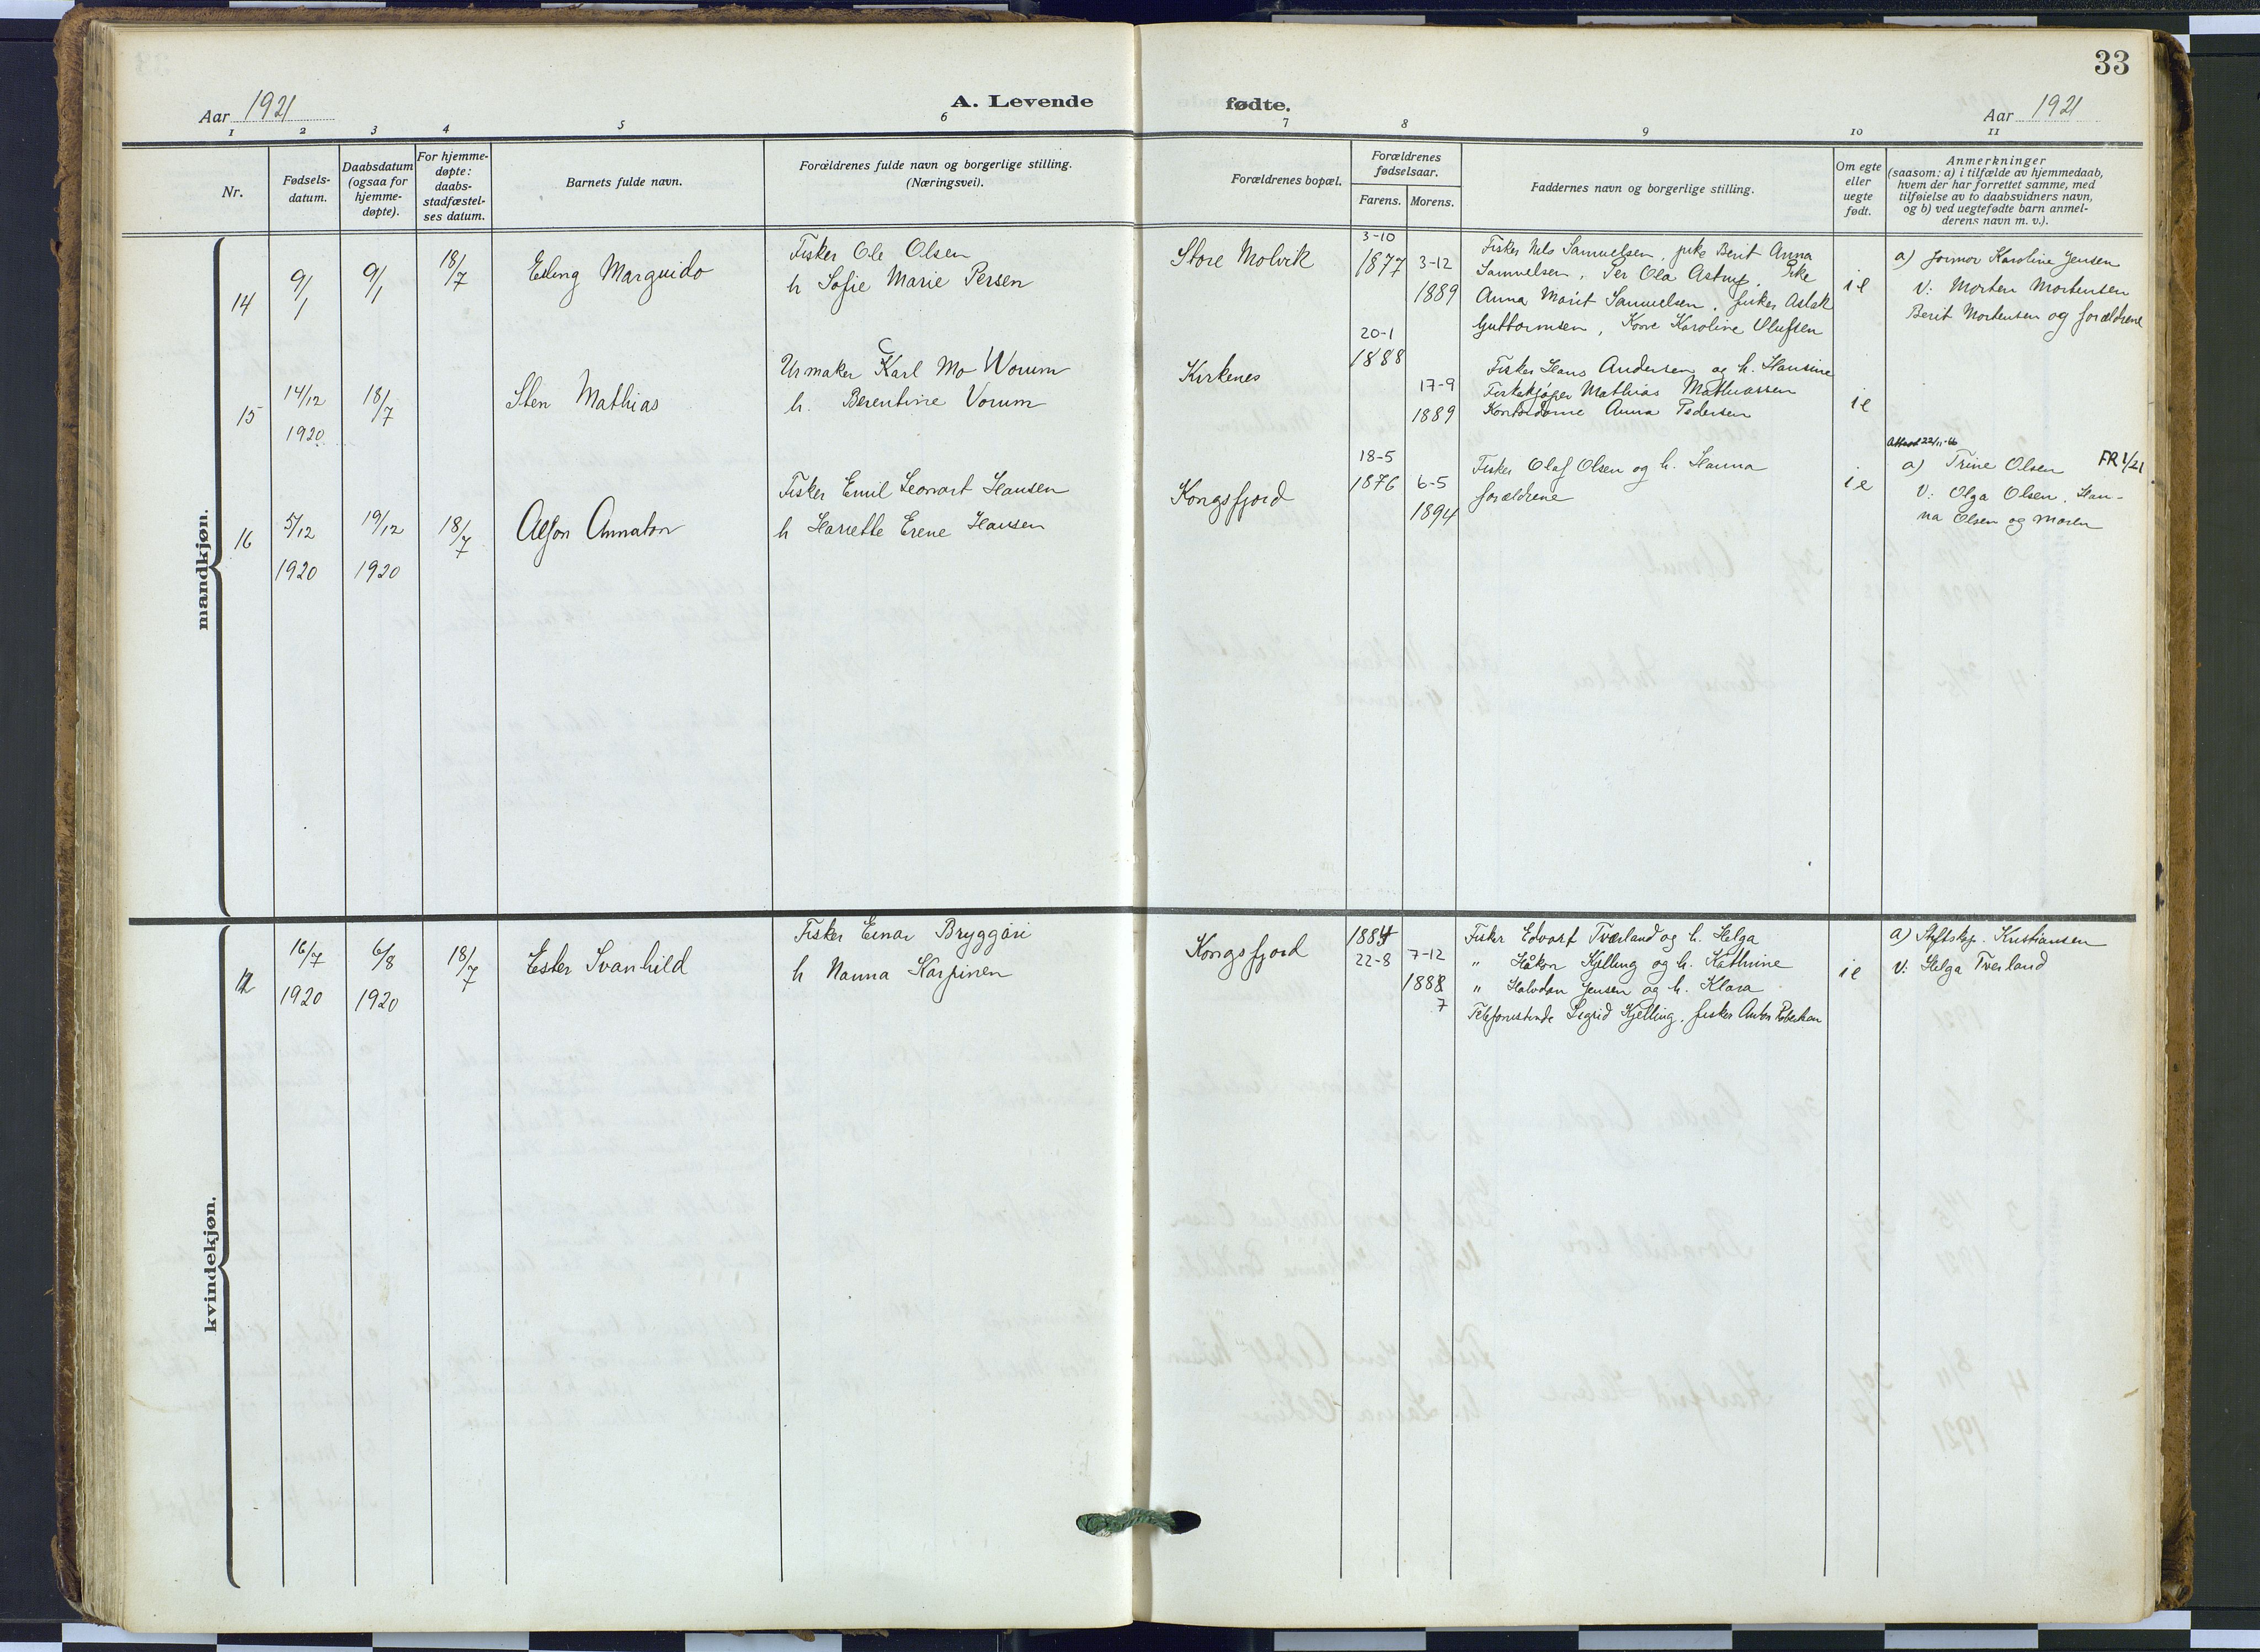 33
Aar 1921
A. Levende
fødte.
Aar 1921
1 2 3 4 5 6 7 8 9 10 11
Nr.
Fødsels-
datum.
Daabsdatum
(ogsaa for
hjemme-
døpte).
For hjemme-
døpte:
daabs-
stadfæstel-
ses datum.
Barnets fulde navn.
Forældrenes fulde navn og borgerlige stilling.
(Næringsvei).
Forældrenes bopæl.
Forældrenes
fødselsaar.
Farens. Morens.
Faddernes navn og borgerlige stilling.
Om egte
eller
uegte
født.
Anmerkninger
(saasom: a) i tilfælde av hjemmedaab,
hvem der har forrettet samme, med
tilføielse av to daabsvidners navn,
og b) ved uegtefødte barn anmel-
derens navn m. v.).
mandkjøn.
14
9/1
9/1
18/7
Erling Marguido
Fisker Ole Olsen
h Sofie Marie Persen
Store Molvik
3-10
1877
3-12
1889
Fisker Nils Samuelsen, pike Berit Anna
Samuelsen, Per Ola Astrup, Pike
Anna Marit Samuelsen, fisker Aslak
Guttormsen, Kone Karoline Olufsen
ie
a) Jormor Karoline Jensen
V: Morten Mortensen
Berit Mortensen og forældrene
15
14/12
1920
18/7
Sten Mathias
Urmaker Karl Mo Worum
C
h. Berentine Vorum
Kirkenes
20-1
1888
17-9
1889
Fisker Hans Andersen og h. Hansine
Fiskekjøper Mathias Mathiassen
Kontordame Anna Pedersen
ie
16
5/12
1920
19/12
1920
18/7
Alfon Annaton
Fisker Emil Leonart Hansen
h Hariette Erene Hansen
Kongsfjord
18-5
1876
6-5
1894
Fisker Olaf Olsen og h. Hanna
forældrene
ie
22/11-66
a) Trine Olsen
FR 1/21
V: Olga Olsen, Han-
na Olsen og moren
kvindekjøn.
12
16/7
1920
6/8
1920
18/7
Ester Svanhild
Fisker Einar Bryggari
h Nanna Karpinen
Kongsfjord
1884
22-8
7-12
1888
7
Fisker Edvart Tverland og h. Helga
" Håkon Kjelling og h. Kathrine
" Halvdan Jensen og h. Klara
Telefonistinde Sigrid Kjelling, fisker Anton Robertsen
ie
a) Stiftskap. Kristiansen
V: Helga Tverland